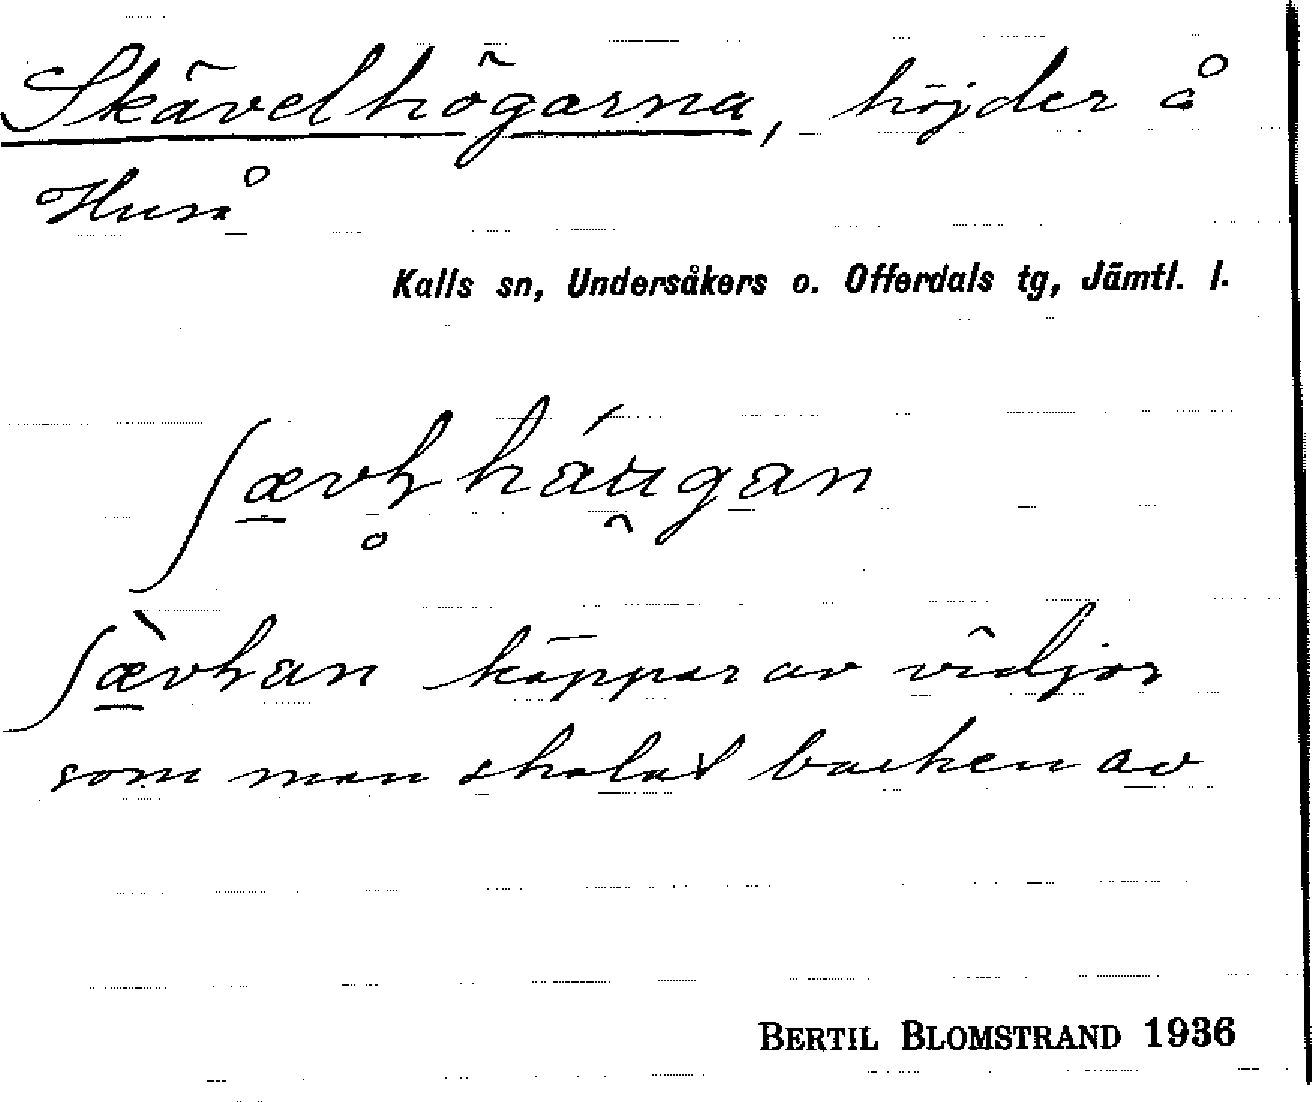 Skävelhögarna, höjder å
Huså
Kalls sn, Undersåkers o. Offerdals tg, Jämtl. l.
ʃævl̥háu̯gan
ʃæ̀vlan käppar av vidjor
som man skalat barken av
BERTIL BLOMSTRAND 1936